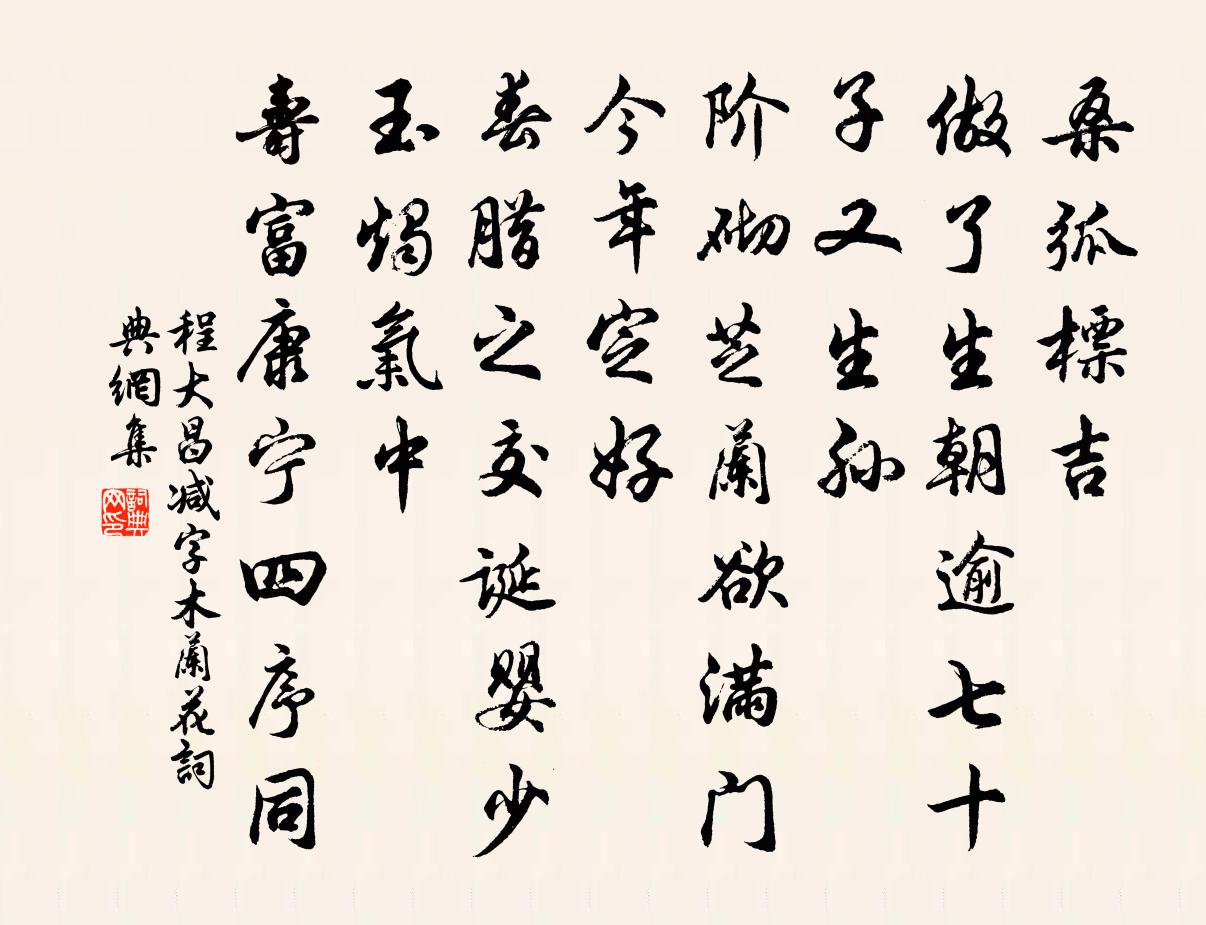 桑弧標吉
做了生朝逾七十
子又生孙
阶砌芝蘭欲满门
今年定好
春腊之交诞婴少
玉燭氣中
壽富康宁四序同
程大昌减字木蘭花詞
典網集
詞典网印